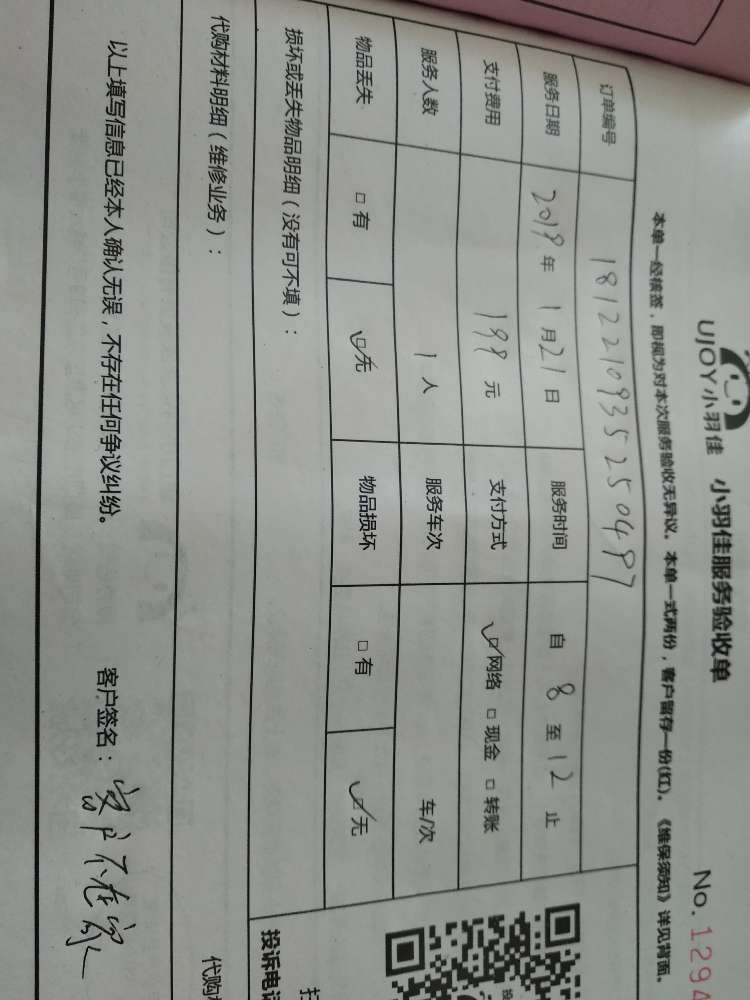 UJOY小羽佳 小羽佳服务验收单 No.1294
本单一经核签，即视为对本次服务验收无异议。本单一式两份，客户留存一份(红)。《维保须知》详见背面。
订单编号 1812210935250497
服务日期 2019年1月21日 服务时间 自8至12止
支付费用 198元 支付方式 ☑网络 □现金 □转账
服务人数 1人 服务车次 车/次
物品丢失 □有 ☑无 物品损坏 □有 ☑无
损坏或丢失物品明细（没有可不填）：
投诉电话
代购材料明细（维修业务）：
代购
以上填写信息已经本人确认无误，不存在任何争议纠纷。 客户签名：客户不在家